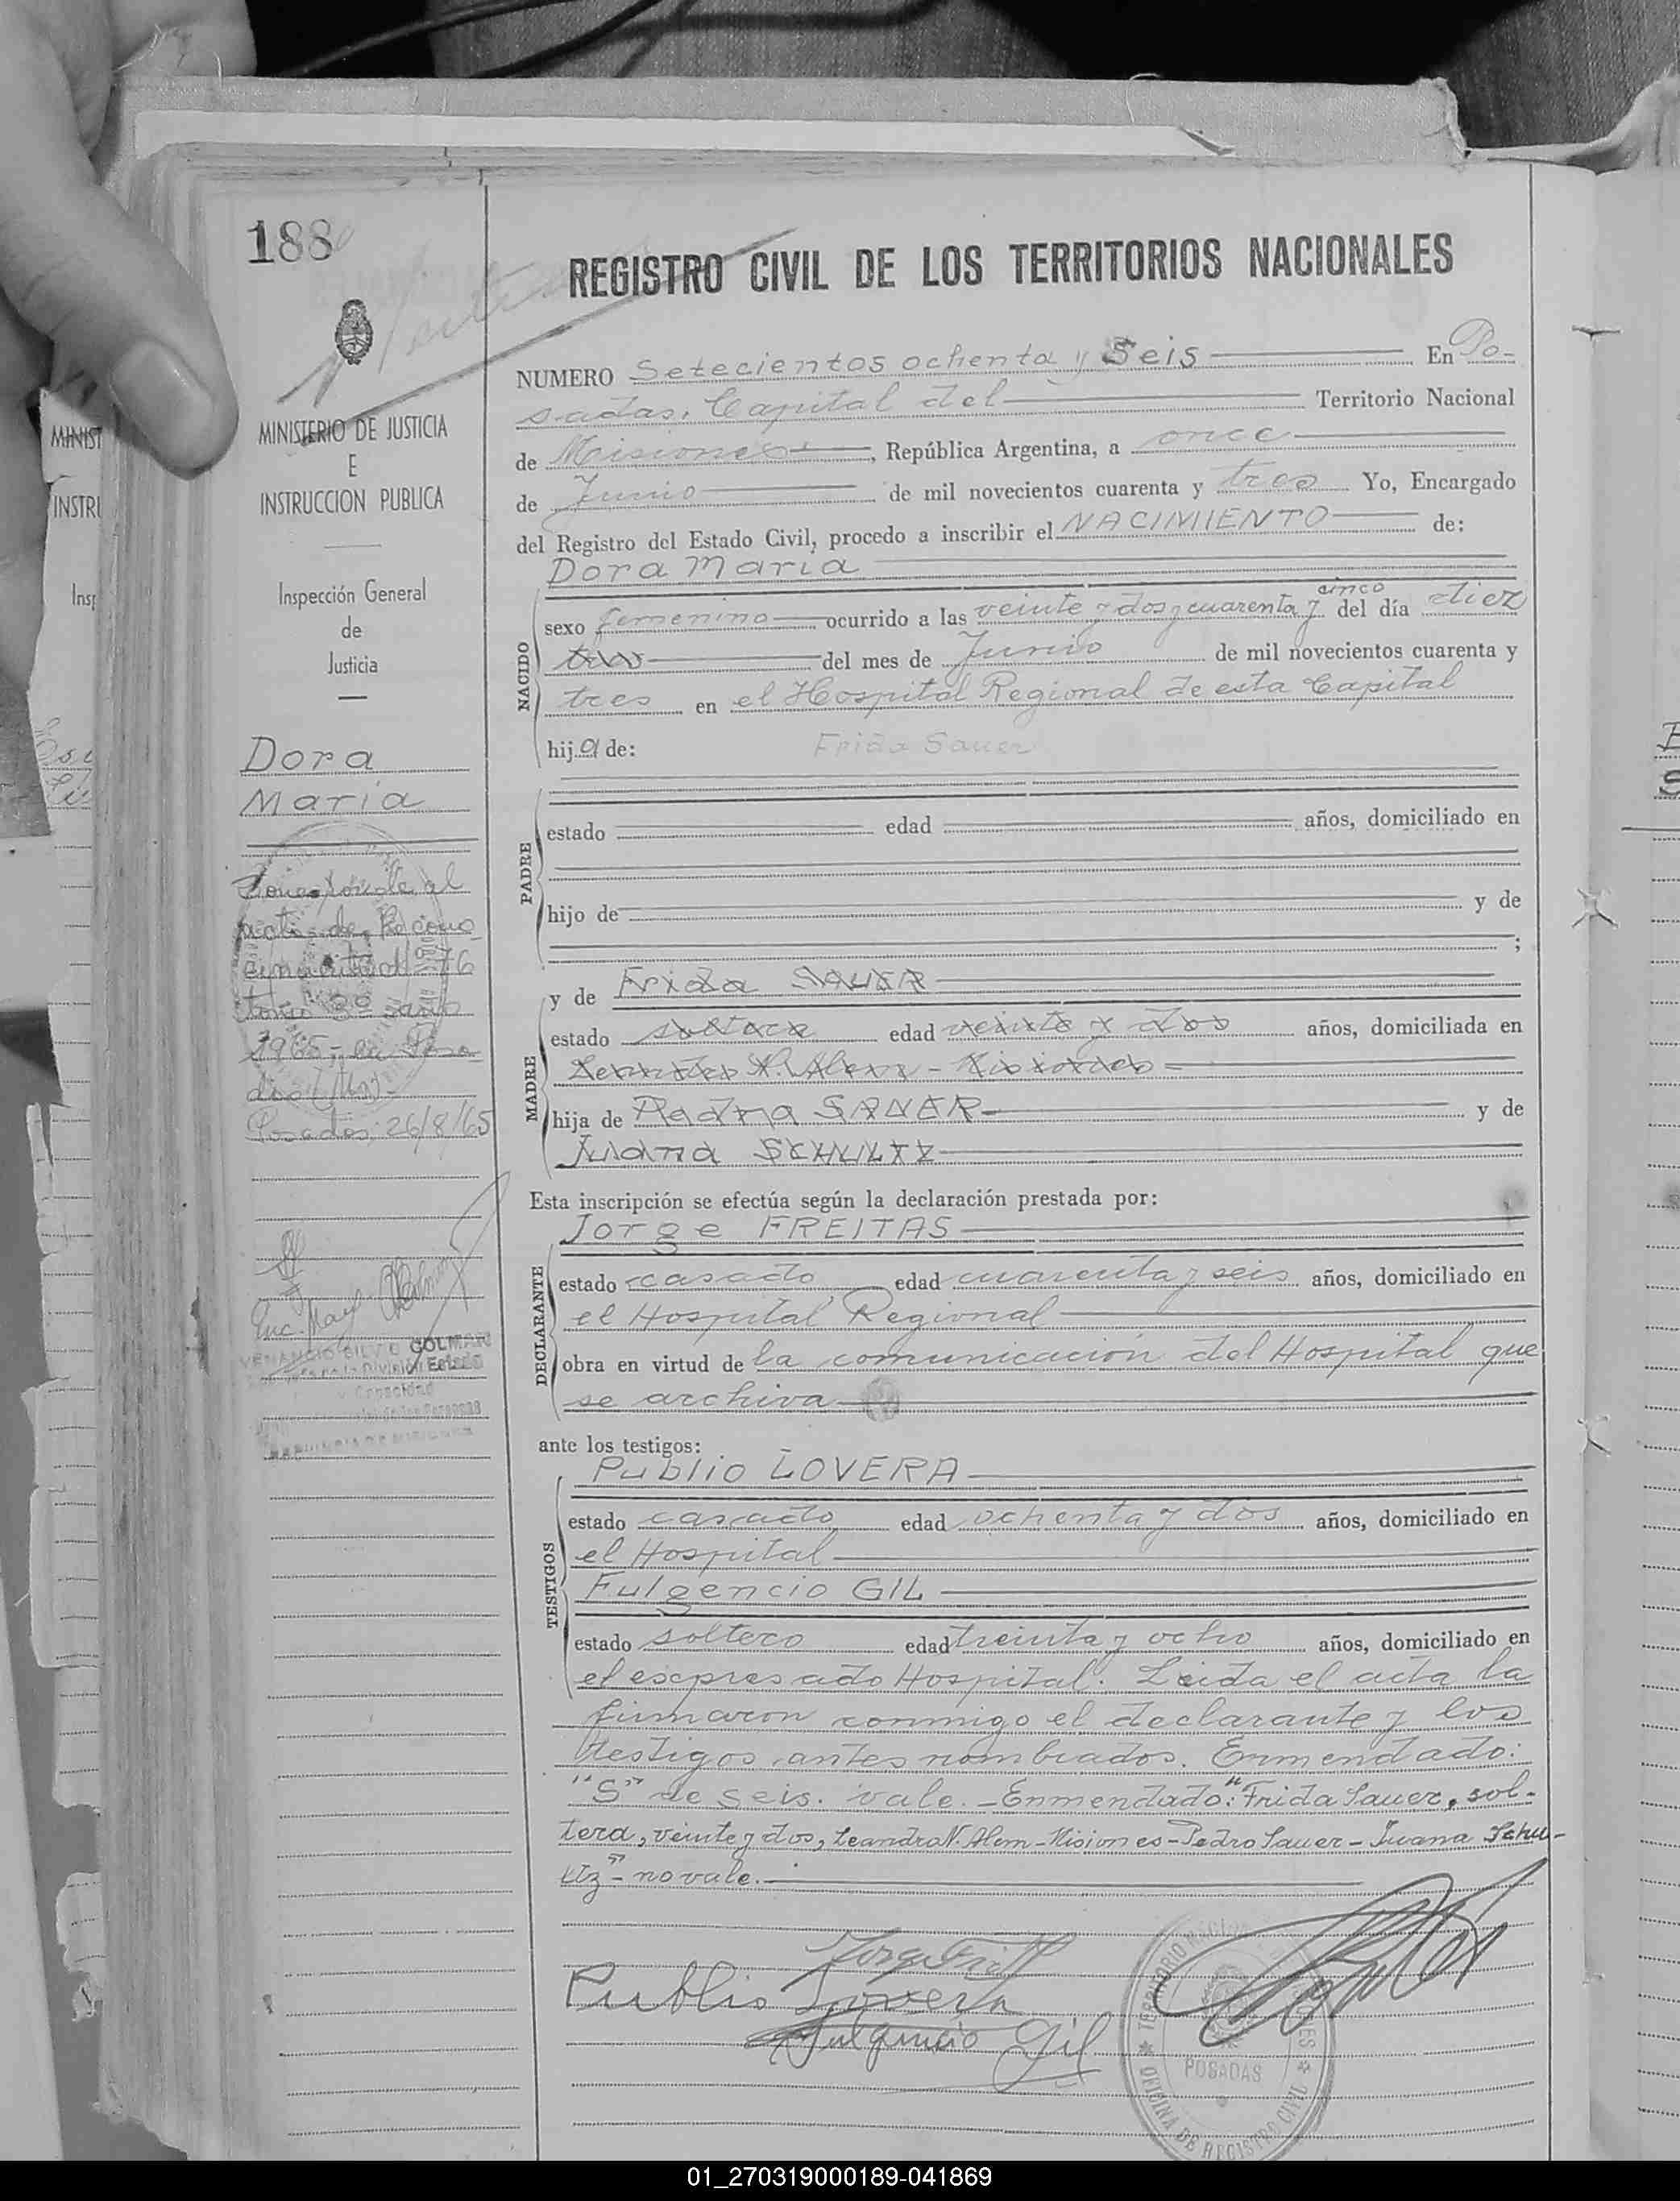 188
REGISTRO CIVIL DE LOS TERRITORIOS NACIONALES
MINISTERIO DE JUSTICIA
E
INSTRUCCION PUBLICA
Inspección General
de
Justicia
Dora
María
acta de Recono
cimiento Nº 76
tomo 3º año
1965, en Posa
das (Mnes)
Posadas, 26/8/65
NUMERO Setecientos ochenta y Seis En Po-
sadas, Capital del Territorio Nacional
de Misiones, República Argentina, a once
de Junio de mil novecientos cuarenta y tres Yo, Encargado
del Registro del Estado Civil, procedo a inscribir el NACIMIENTO de:
Dora María
NACIDO
cinco
sexo femenino ocurrido a las veinte y dos y cuarenta y del día diez
del mes de Junio de mil novecientos cuarenta y
tres en el Hospital Regional de esta Capital
hija de: Frida Sauer
PADRE
estado edad años, domiciliado en
hijo de y de
;
MADRE
y de Frida SAUER
estado soltera edad veinte y dos años, domiciliada en
Leandro N. Alem - Misiones
hija de Pedro SAUER y de
Juana SCHULTZ
Esta inscripción se efectúa según la declaración prestada por:
Jorge FREITAS
DECLARANTE
estado casado edad cuarenta y seis años, domiciliado en
el Hospital Regional
obra en virtud de la comunicación del Hospital que
se archiva
ante los testigos:
Publio LOVERA
TESTIGOS
estado casado edad ochenta y dos años, domiciliado en
el Hospital
Fulgencio GIL
estado soltero edad treinta y ocho años, domiciliado en
el espresado Hospital. Leida el acta la
firmaron conmigo el declarante y los
testigos antes nombrados. Enmendado:
"S" de Seis. vale. - Enmendado: "Frida Sauer, sol-
tera, veinte y dos, Leandro N. Alem - Misiones - Pedro Sauer - Juana Schu-
ltz" - no vale.
Publio Lovera
Fulgencio Gil
POSADAS
OFICINA DE REGISTRO CIVIL
01_270319000189-041869